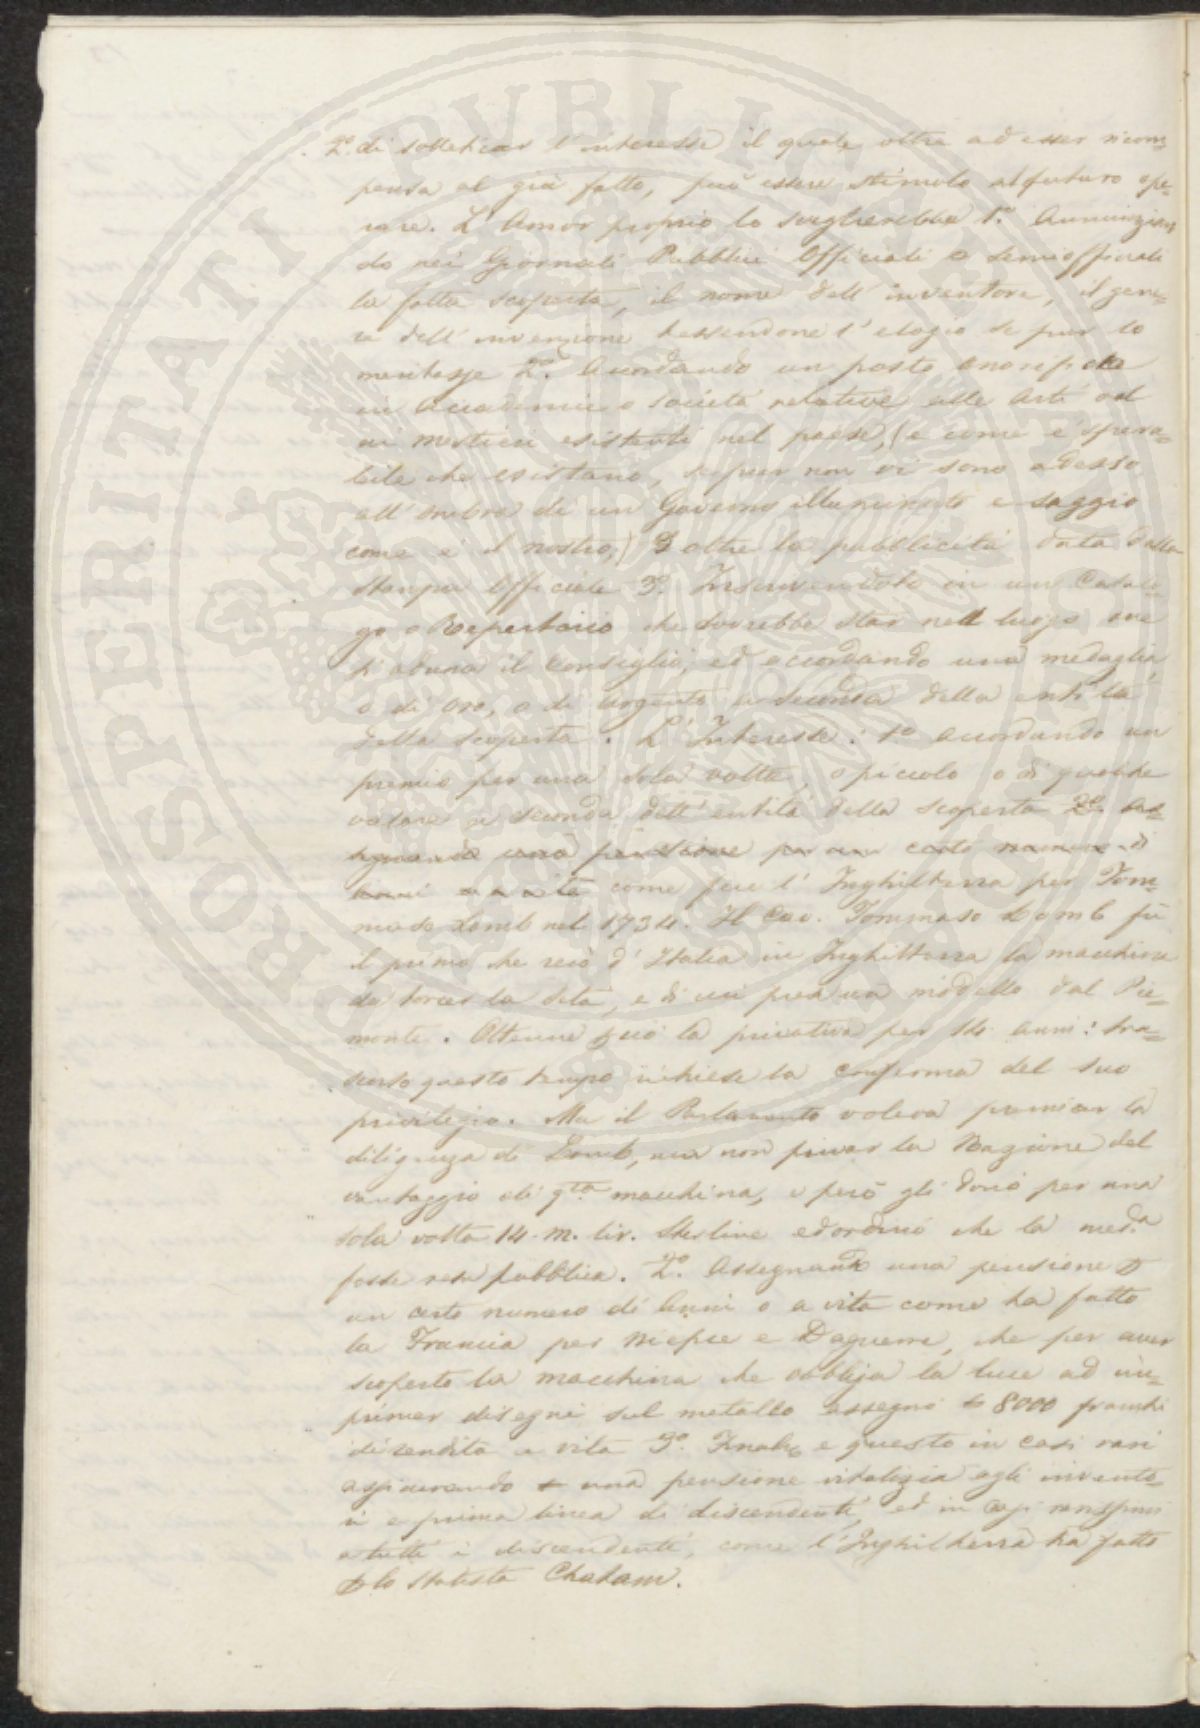 2.° di solleticar l'interesse il quale oltre ad esser ricom=
pensa al già fatto, può essere stimolo al futuro ope=
rare. L'Amor proprio lo sveglierebbe 1.° Annunzian
do nei Giornali Pubblici Officiali o semiofficiali
la fatta scoperta, il nome dell'inventore, il gene=
re dell'invenzione tessendone l'elogio se pur lo
meritasse 2.° Accordando un posto onorifico
in Accademie o società relative alle Arti od
ai mestieri esistenti nel paese, (e come è spera=
bile che esistano, seppur non vi sono adesso
all'ombra di un Governo illuminato e saggio
come è il nostro,) oltre la pubblicità data dalla
stampa Officiale 3.° Inscrivendolo in un Catalo=
go o Repertorio che dovrebbe star nell luogo ove
si aduna il Consiglio, ed accordando una medaglia
o di oro, o di argento a seconda della entità
della scoperta. L'Interesse: 1.° accordando un
premio per una sola volta, o piccolo o di qualche
valore a seconda dell'entità della scoperta 2.° As=
segnando una pensione per un certo numero di
anni o a vita come fece l'Inghilterra per Tom=
maso Lomb nel 1734. Il Cav. Tommaso Lomb fù
il primo che recò d'Italia in Inghilterra la macchina
da torcer la seta, e di cui prese un modello dal Pie=
monte. Ottenne la privativa per 14 anni: tra=
scorso questo tempo richiese la conferma del suo
privilegio. Ma il Parlamento voleva premiar la
diligenza di Lomb, ma non privar la Nazione del
vantaggio di q.ta macchina, e però gli donò per una
sola volta 14 m. lir. Sterline ed ordinò che la med.a
fosse resa pubblica. 2.° Assegnando una pensione
un certo numero di Anni o a vita come ha fatto
la Francia per Niepce e Daguerre, che per aver
scoperto la macchina che obbliga la luce ad im=
primer disegni sul metallo assegnò 8000 franchi
di rendita a vita 3.° Finalm. e questo in casi rari
assicurando una pensione vitalizia agli invento=
ri e prima linea di discendenti, ed in casi rarissimi
a tutti i discendenti, come l'Inghilterra ha fatto
lo Statista Chatam.
SPERITATI PUBLICAE